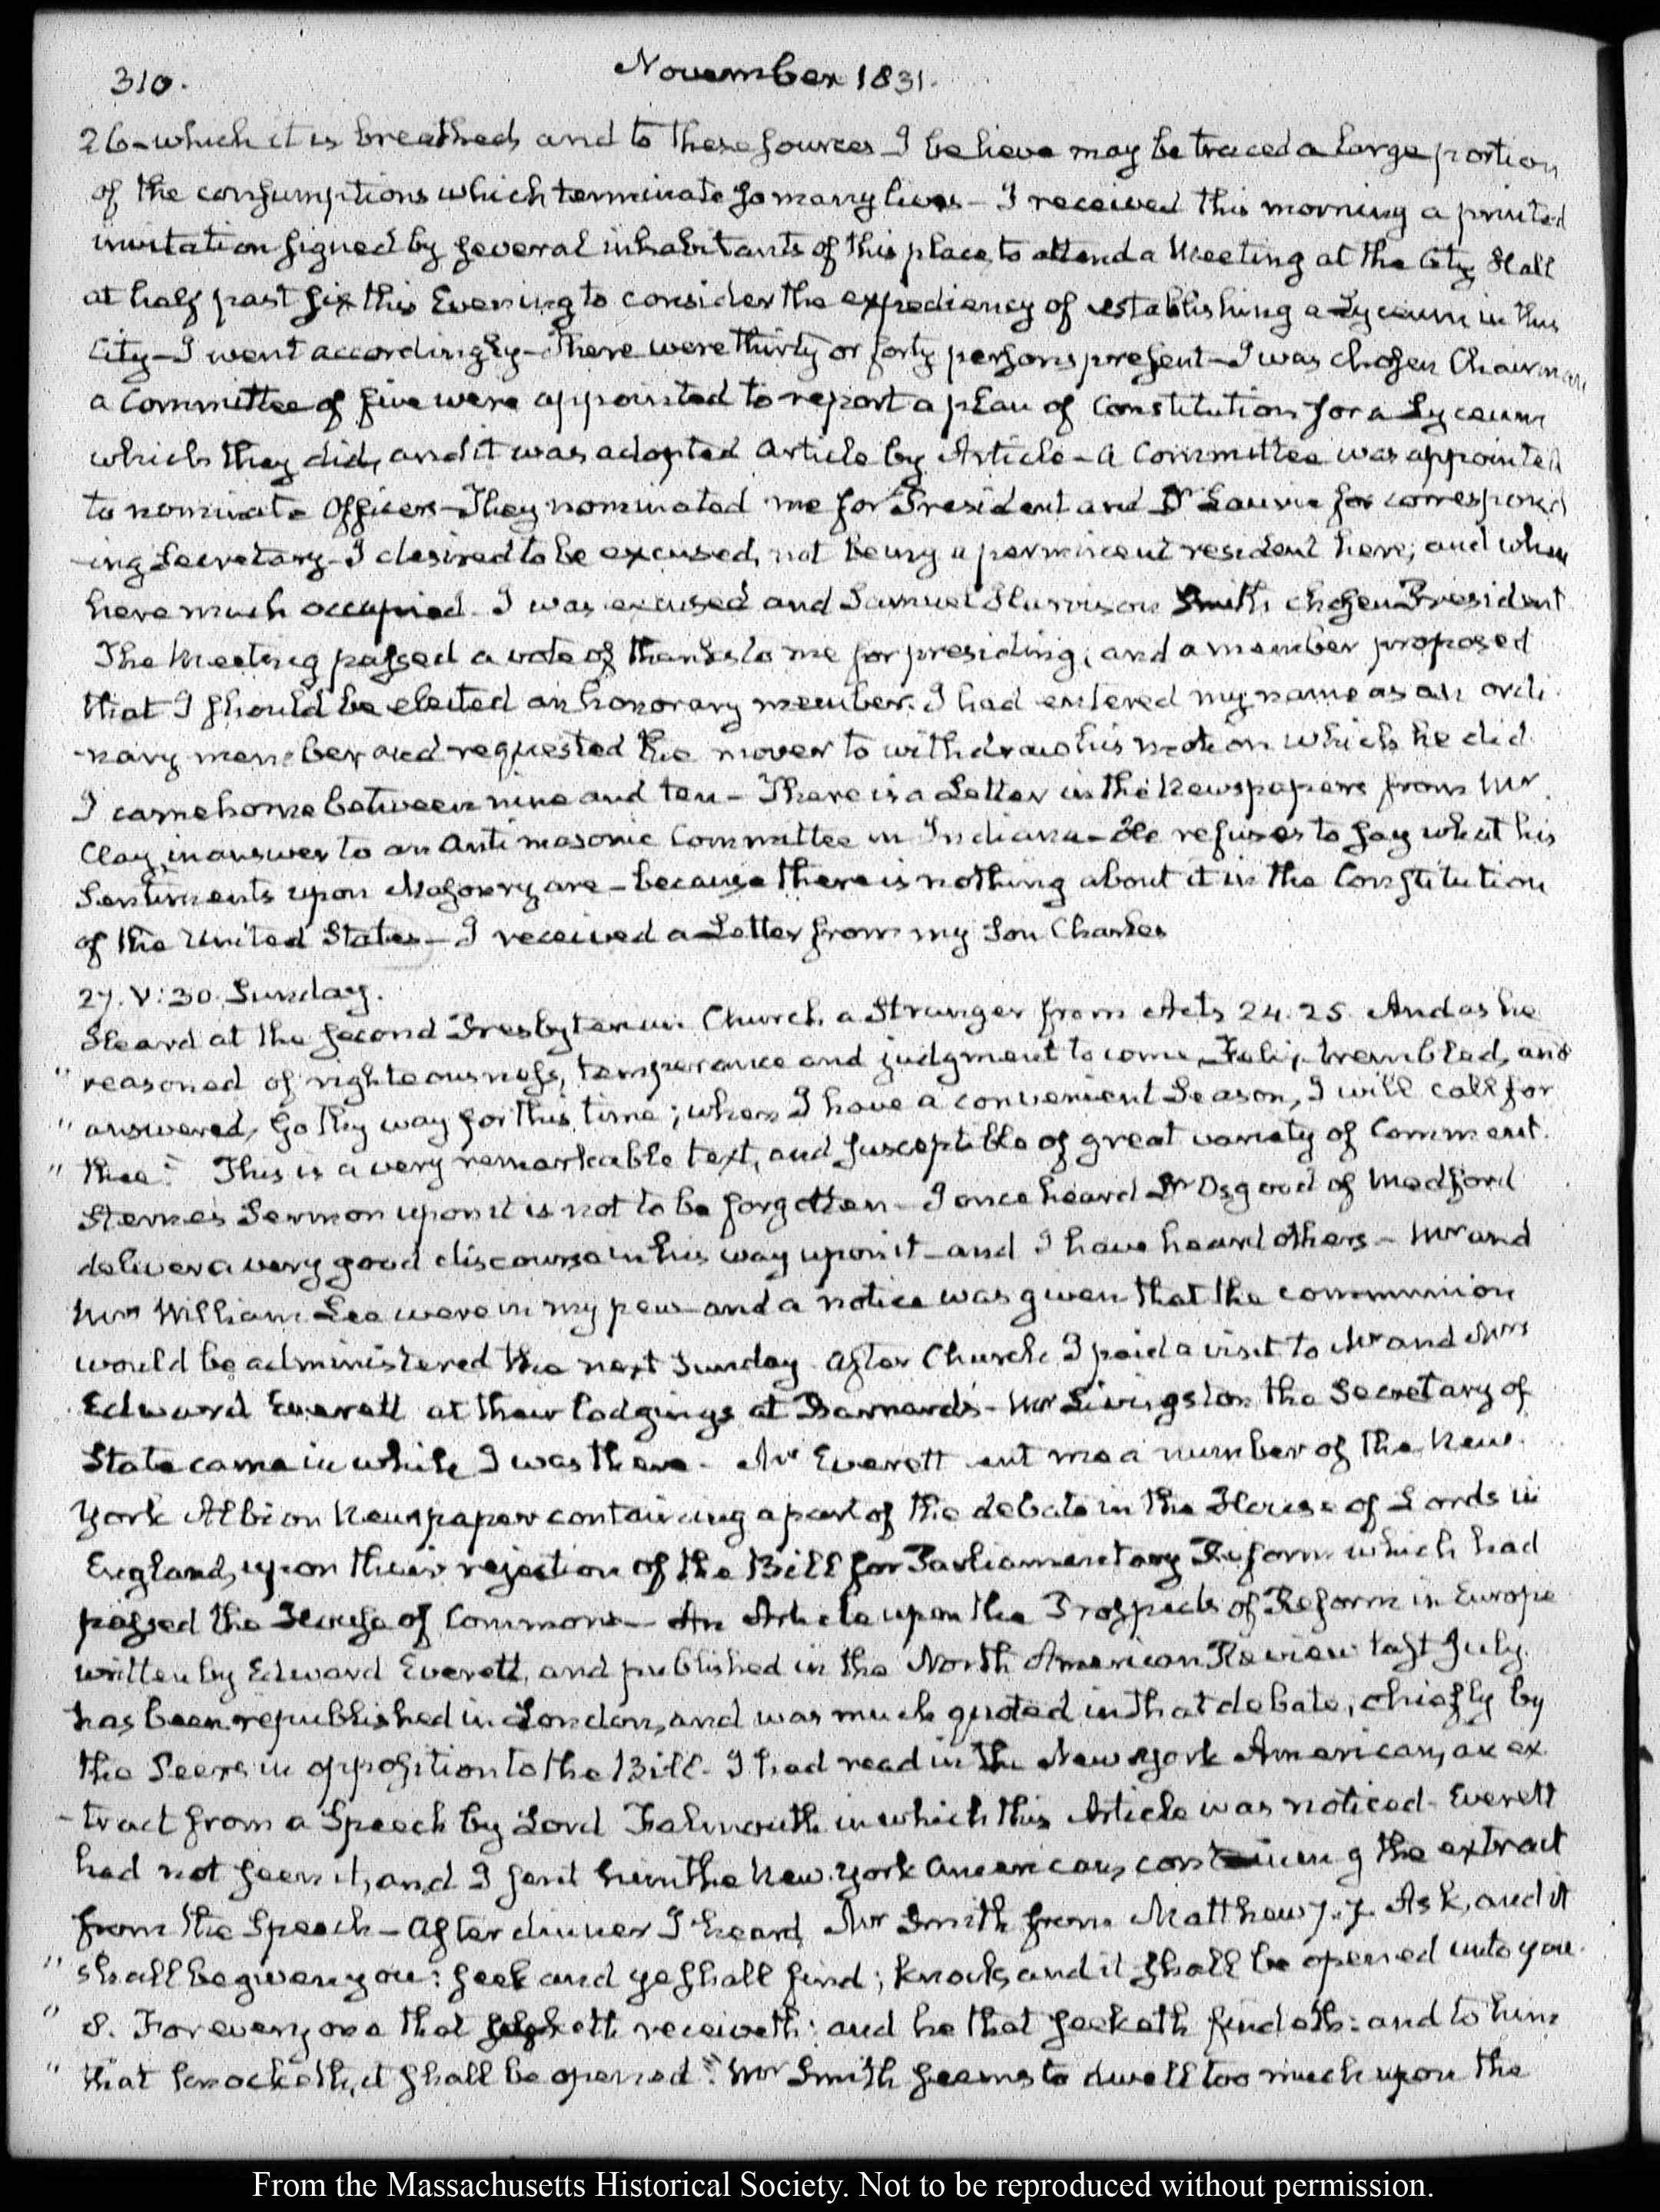 310.
November 1831.
26 - which it is breathed, and to these sources I believe may be traced a large portion
of the consumptions which terminate so many lives - I received this morning a printed
invitation signed by several inhabitants of this place, to attend a Meeting at the City Hall
at half past six this Evening to consider the expediency of establishing a Lyceum in this
City - I went accordingly - There were thirty or forty persons present - I was chosen Chairman
a Committee of five were appointed to report a plan of Constitution for a Lyceum
which they did, and it was adopted Article by Article - A Committee was appointed
to nominate Officers - They nominated me for President and Dr Laurie for correspond
-ing Secretary - I desired to be excused, not being a permanent resident here; and when
here much occupied. I was excused and Samuel Harrison Smith chosen President
The Meeting passed a vote of thanks to me for presiding; and a member proposed
that I should be elected an honorary member. I had entered my name as an ordi
-nary member and requested the mover to withdraw his motion which he did.
I came home between nine and ten - There is a Letter in the Newspapers from Mr
Clay, in answer to an Antimasonic Committee in Indiana - He refuses to say what his
Sentiments upon Masonry are - because there is nothing about it in the Constitution
of the United States - I received a Letter from my Son Charles
27. V:30. Sunday.
Heard at the second Presbyterian Church a Stranger from Acts 24. 25. And as he
" reasoned of righteousness, temperance and judgment to come, Felix trembled, and
" answered, Go thy way for this time; when I have a convenient Season, I will call for
" thee." This is a very remarkable text, and susceptible of great variety of Comment.
Sterne's Sermon upon it is not to be forgotten - I once heard Dr Osgood of Medford
deliver a very good discourse in his way upon it - and I have heard others - Mr and
Mrs William Lee were in my pew and a notice was given that the communion
would be administered the next Sunday. After Church I paid a visit to Mr and Mrs
Edward Everett at their lodgings at Barnard's - Mr Livingston the Secretary of
State came in while I was there. Mr Everett me a number of the New.
York Albion Newspaper containing a part of the debate in the House of Lords in
England, upon their rejection of the Bill for Parliamentary Reform which had
passed the House of Commons - An Article upon the Prospects of Reform in Europe
written by Edward Everett, and published in the North American Review last July.
has been republished in London, and was much quoted in that debate, chiefly by
the Peers in opposition to the Bill - I had read in the New York American, an ex
-tract from a Speech by Lord Falmouth in which this Article was noticed - Everett
had not seen it, and I sent him the New York American, containing the extract
from the Speech - After dinner I heard Mr Smith from Matthew 7. 7. Ask, and it
" shall be given you: seek and ye shall find; knock, and it shall be opened unto you.
" 8. For every one that receiveth: and he that seeketh findeth: and to him
" that knocketh, it shall be opened." Mr Smith seems to dwell too much upon the
From the Massachusetts Historical Society. Not to be reproduced without permission.